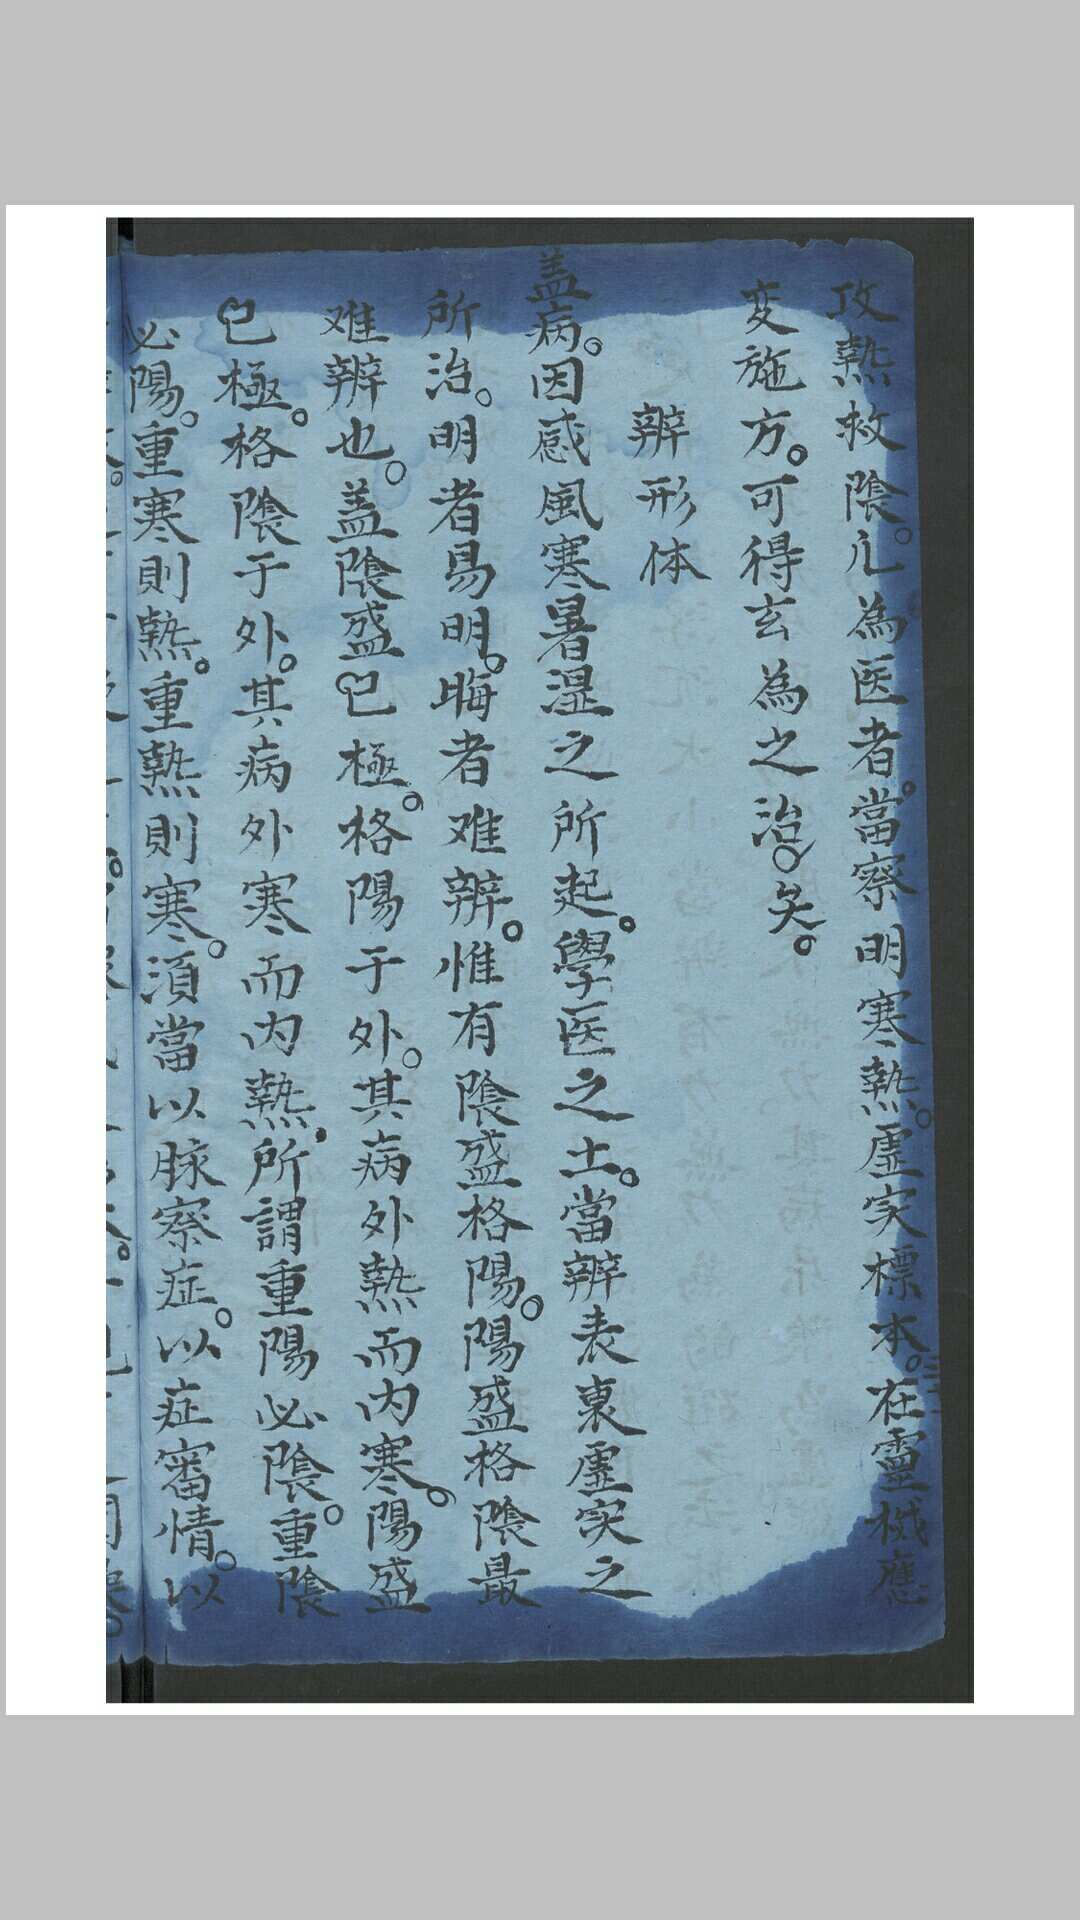 攻熱救陰。凢為医者。當察明寒熱。虛実標本。在靈機應
変施方。可得玄為之治矣。
辨形体
盖病。因感風寒暑湿之所起。學医之士。當辨表裏虛実之
所治。明者易明。晦者难辨。惟有陰盛格陽。陽盛格陰最
难辨也。盖陰盛已極。格陽于外。其病外熱而内寒。陽盛
已極。格陰于外。其病外寒而内熱。所謂重陽必陰。重陰
必陽。重寒則熱。重熱則寒。須當以脉察症。以症審情。以